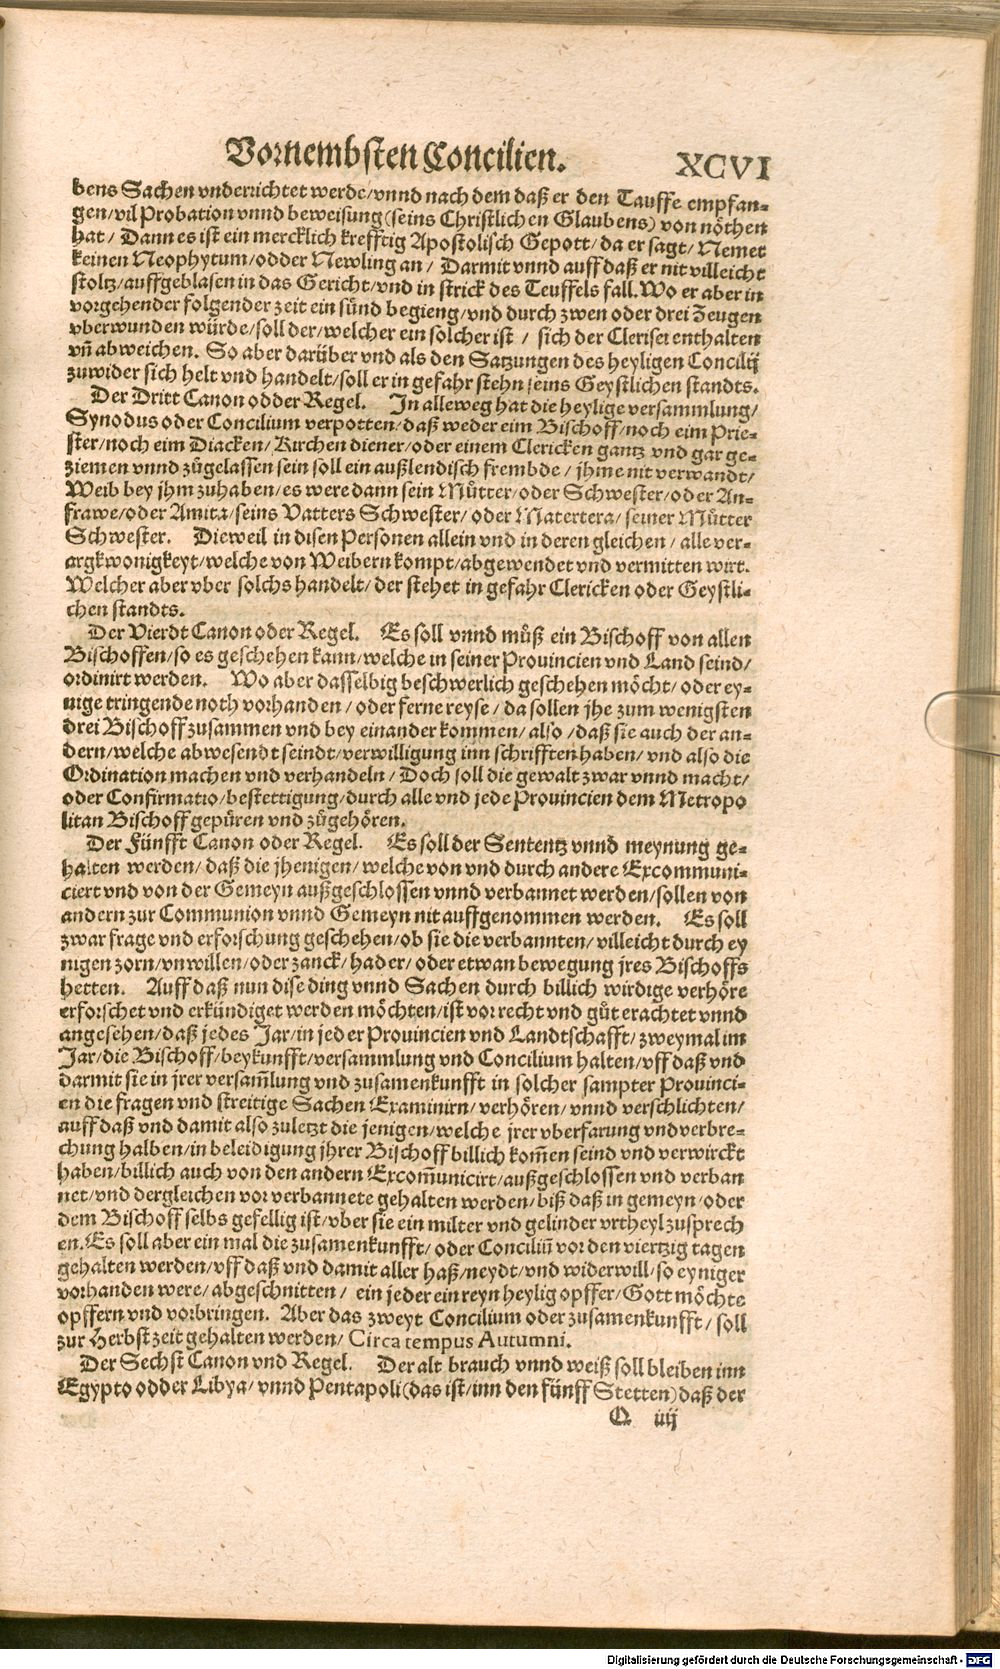 Vornembsten Concilien. XCVI
bens Sachen vnderrichtet werde/vnnd nach dem daß er den Tauffe empfan-
gen/vil Probation vnnd beweisung (seins Christlichen Glaubens) von nöthen
hat / Dann es ist ein mercklich krefftig Apostolisch Gepott/ da er sagt/ Nemet
keinen Neophytum/odder Newling an / Darmit vnnd auff daß er nit villeicht
stoltz/auffgeblasen in das Gericht/vnd in strick des Teuffels fall. Wo er aber in
vorgehender folgender zeit ein sünd begieng/vnd durch zwen oder drei Zeugen
vberwunden würde/soll der/welcher ein solcher ist / sich der Clerisei enthalten
vñ abweichen. So aber darüber vnd als den Satzungen des heyligen Concilij
zuwider sich helt vnd handelt/soll er in gefahr stehn seins Geystlichen standts.
Der Dritt Canon odder Regel. In alleweg hat die heylige versammlung/
Synodus oder Concilium verpotten/daß weder eim Bischoff/noch eim Prie-
ster/noch eim Diacken/Kirchen diener/oder einem Clericken gantz vnd gar ge-
ziemen vnnd zůgelassen sein soll ein außlendisch frembde / jhme nit verwandt/
Weib bey jhm zuhaben/es were dann sein Můtter/oder Schwester/oder An-
frawe/oder Amita/seins Vatters Schwester/ oder Matertera/ seiner Můtter
Schwester. Dieweil in disen Personen allein vnd in deren gleichen / alle ver-
argkwonigkeyt/welche von Weibern kompt/abgewendet vnd vermitten wirt.
Welcher aber vber solchs handelt/ der stehet in gefahr Clericken oder Geystli-
chen standts.
Der Vierdt Canon oder Regel. Es soll vnnd můß ein Bischoff von allen
Bischoffen/so es geschehen kann/welche in seiner Prouincien vnd Land seind/
ordinirt werden. Wo aber dasselbig beschwerlich geschehen möcht/ oder ey-
nige tringende noth vorhanden / oder ferne reyse / da sollen jhe zum wenigsten
drei Bischoff zusammen vnd bey einander kommen/ also /daß sie auch der an-
dern/welche abwesendt seindt/verwilligung inn schrifften haben/ vnd also die
Ordination machen vnd verhandeln / Doch soll die gewalt zwar vnnd macht/
oder Confirmatio/bestettigung/durch alle vnd jede Prouincien dem Metropo
litan Bischoff gepüren vnd zůgehören.
Der Fünfft Canon oder Regel. Es soll der Sententz vnnd meynung ge-
halten werden/ daß die jhenigen/ welche von vnd durch andere Excommuni-
ciert vnd von der Gemeyn außgeschlossen vnnd verbannet werden/sollen von
andern zur Communion vnnd Gemeyn nit auffgenommen werden. Es soll
zwar frage vnd erforschung geschehen/ob sie die verbannten/villeicht durch ey
nigen zorn/vnwillen/oder zanck/ hader/ oder etwan bewegung jres Bischoffs
hetten. Auff daß nun dise ding vnnd Sachen durch billich wirdige verhöre
erforschet vnd erkündiget werden möchten/ist vor recht vnd gůt erachtet vnnd
angesehen/daß jedes Jar/in jeder Prouincien vnd Landtschafft/zweymal im
Jar/die Bischoff/beykunfft/versammlung vnd Concilium halten/vff daß vnd
darmit sie in jrer versam̃lung vnd zusamenkunfft in solcher sampter Prouinci-
en die fragen vnd streitige Sachen Examinirn/verhören/ vnnd verschlichten/
auff daß vnd damit also zuletzt die jenigen/welche jrer vberfarung vnd verbre-
chung halben/in beleidigung jhrer Bischoff billich kom̃en seind vnd verwirckt
haben/billich auch von den andern Excom̃unicirt/außgeschlossen vnd verban
net/vnd dergleichen vor verbannete gehalten werden/biß daß in gemeyn/oder
dem Bischoff selbs gefellig ist/vber sie ein milter vnd gelinder vrtheyl zusprech
en. Es soll aber ein mal die zusamenkunfft/ oder Conciliũ vor den viertzig tagen
gehalten werden/vff daß vnd damit aller haß/neydt/vnd widerwill/so eyniger
vorhanden were/abgeschnitten / ein jeder ein reyn heylig opffer/Gott möchte
opffern vnd vorbringen. Aber das zweyt Concilium oder zusamenkunfft/ soll
zur Herbst zeit gehalten werden/ Circa tempus Autumni.
Der Sechst Canon vnd Regel. Der alt brauch vnnd weiß soll bleiben inn
Egypto odder Libya/ vnnd Pentapoli(das ist/inn den fünff Stetten)daß der
Q iiij
Digitalisierung gefördert durch die Deutsche Forschungsgemeinschaft - DFG